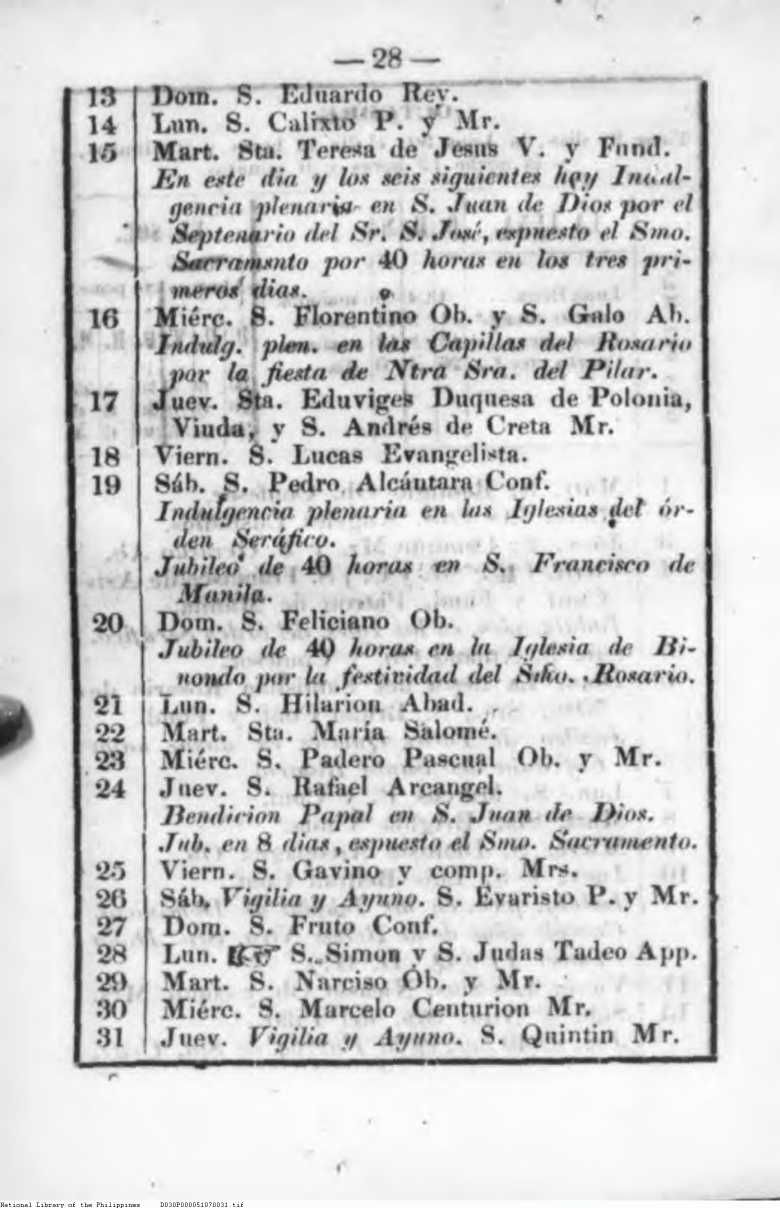 — 28 —
13 Dom. S. Eduardo Rey.
14 Lun. S. Calixto P. y Mr.
15 Mart. Sta. Teresa de Jesus V. y Fund.
En este dia y los seis siguientes hay Indul-
gencia plenaria en S. Juan de Dios por el
Septenario del Sr. S. José, espuesto el Smo.
Sacramsnto por 40 horas en los tres pri-
meros dias.
16 Miérc. S. Florentino Ob. y S. Galo Ab.
Indulg. plen. en las Capillas del Rosario
por la fiesta de Ntra Sra. del Pilar.
17 Juev. Sta. Eduviges Duquesa de Polonia,
Viuda, y S. Andrés de Creta Mr.
18 Viern. S. Lucas Evangelista.
19 Sáb. S. Pedro Alcáutara Conf.
Indulgencia plenaria en las Iglesias del ór-
den Seráfico.
Jubileo de 40 horas en S. Francisco de
Manila.
20 Dom. S. Feliciano Ob.
Jubileo de 40 horas en la Iglesia de Bi-
nondo por la festividad del Rosario.
21 Lun. S. Hilarion Abad.
22 Mart. Sta. María Salomé.
23 Miérc. S. Padero Pascual Ob. y Mr.
24 Juev. S. Rafael Arcangel.
Bendicion Papal en S. Juan de Dios.
Jub. en 8 dias, espuesto el Smo. Sacramento.
25 Viern. S. Gavino y comp. Mrs.
26 Sáb. Vigilia y Ayuno. S. Evaristo P. y Mr.
27 Dom. S. Fruto Conf.
28 Lun. ☞ S. Simon y S. Judas Tadeo App.
29 Mart. S. Narciso Ob. y Mr.
30 Miérc. S. Marcelo Centurion Mr.
31 Juev. Vigilia y Ayuno. S. Quintin Mr.
National Library of the Philippines D030P000051070031.tif